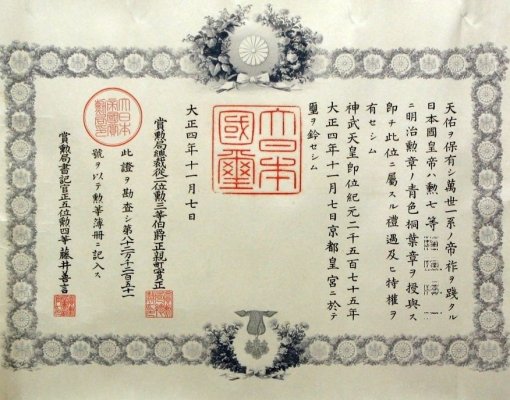 天佑ヲ保有シ萬世一系ノ帝祚ヲ踐タル
日本國皇帝ハ勲七等
ニ明治勲章ノ青色桐葉章ヲ授與ス
即チ此位ニ屬スル禮遇及ヒ特權ヲ
有セシム
神武天皇即位紀元二千五百七十五年
大正四年十一月七日京都皇宮ニ於テ
璽ヲ鈐セシム
大日本
國璽
大正四年十一月七日
賞勲局總裁從二位勲三等伯爵正親町實正
此證ヲ勘査シ第八十二万千二百五十一
號ヲ以テ勲等簿冊ニ記入ス
賞勲局書記官正五位勲四等藤井善言